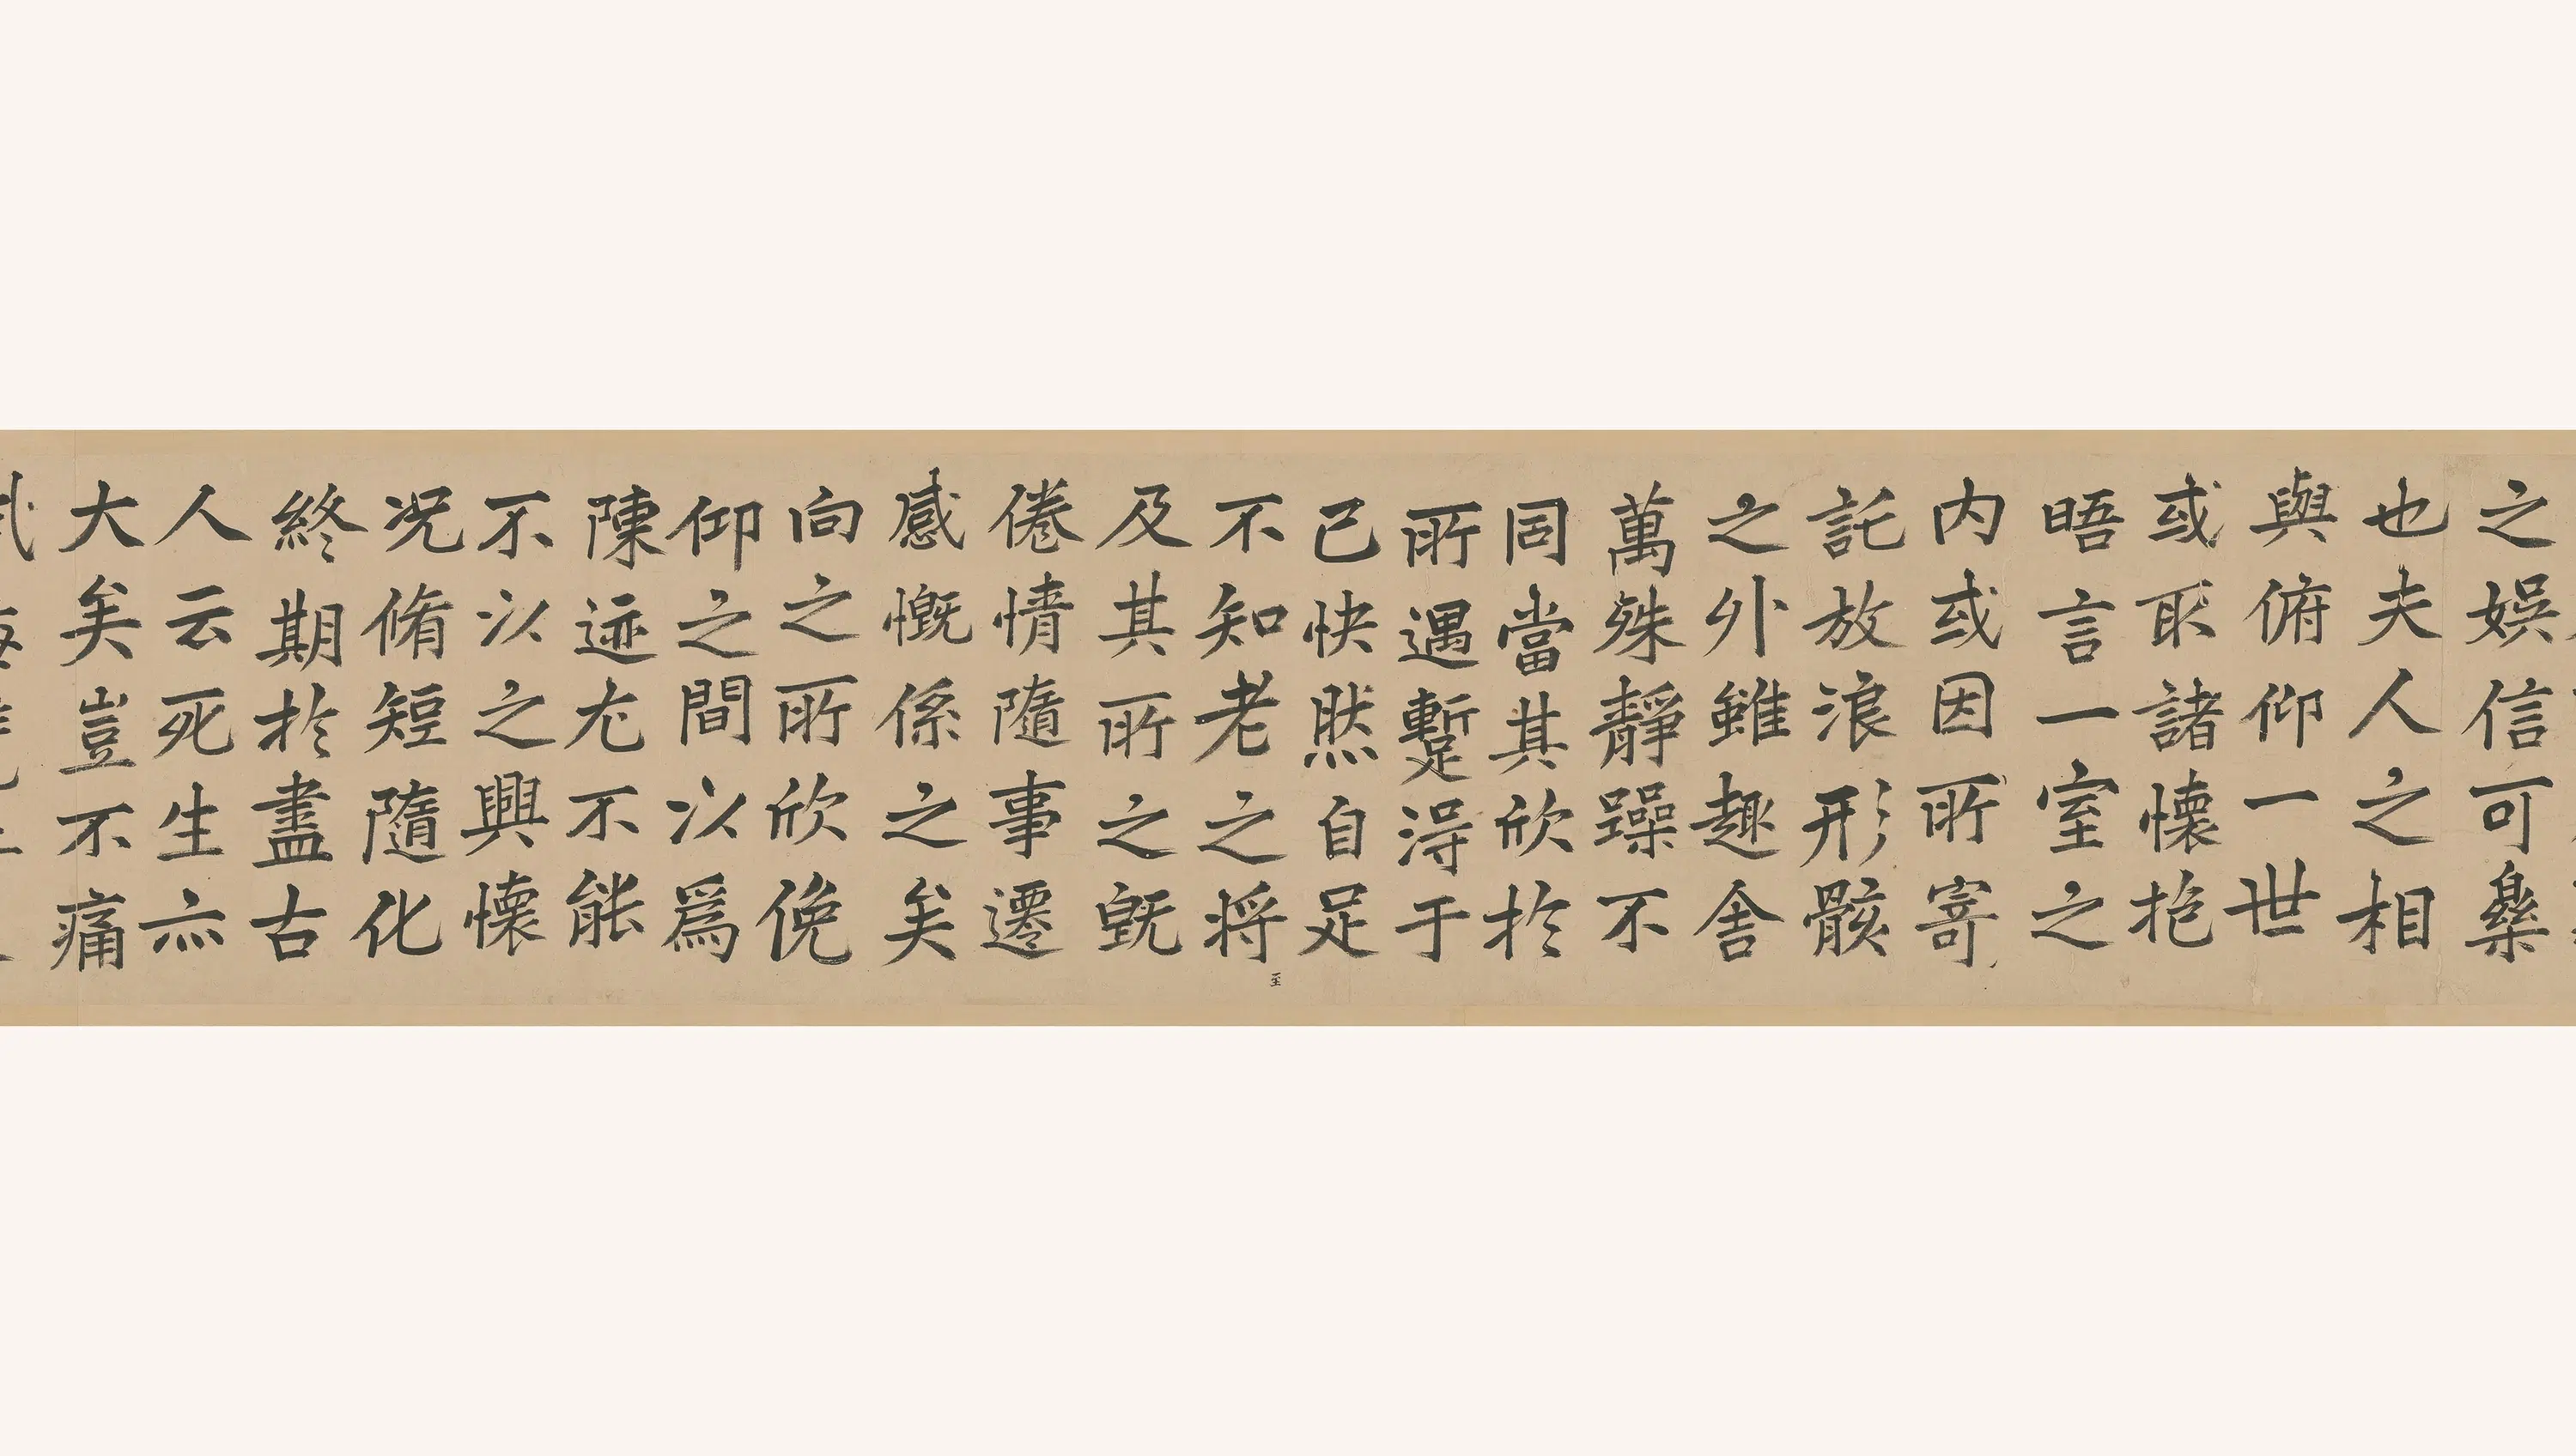 之娛信可樂
也夫人之相
與俯仰一世
或取諸懷抱
晤言一室之
内或因所寄
託放浪形骸
之外雖趣舍
萬殊靜躁不
同當其欣於
所遇蹔得于
己快然自足
不知老之將至
及其所之既
倦情隨事遷
感慨係之矣
向之所欣俛
仰之間以爲
陳迹尤不能
不以之興懷
况脩短隨化
終期於盡古
人云死生亦
大矣豈不痛